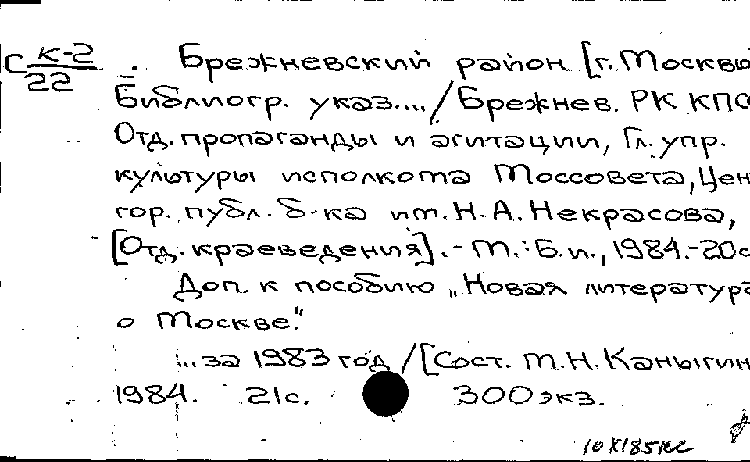 С К-2/22
Брежневский район [г. Москвы
Библиогр. указ.... / Брежнев. РК КПС
Отд. пропаганды и агитации, Гл. упр.
культуры исполкома Моссовета, Цен
гор. публ. б-ка им. Н. А. Некрасова,
[Отд. краеведения]. - М.: Б. и., 1984. - 20с
Доп. к пособию „Новая литература
о Москве".
... за 1983 год / [Сост. М. Н. Каныгин
1984. 21с. 300 экз.